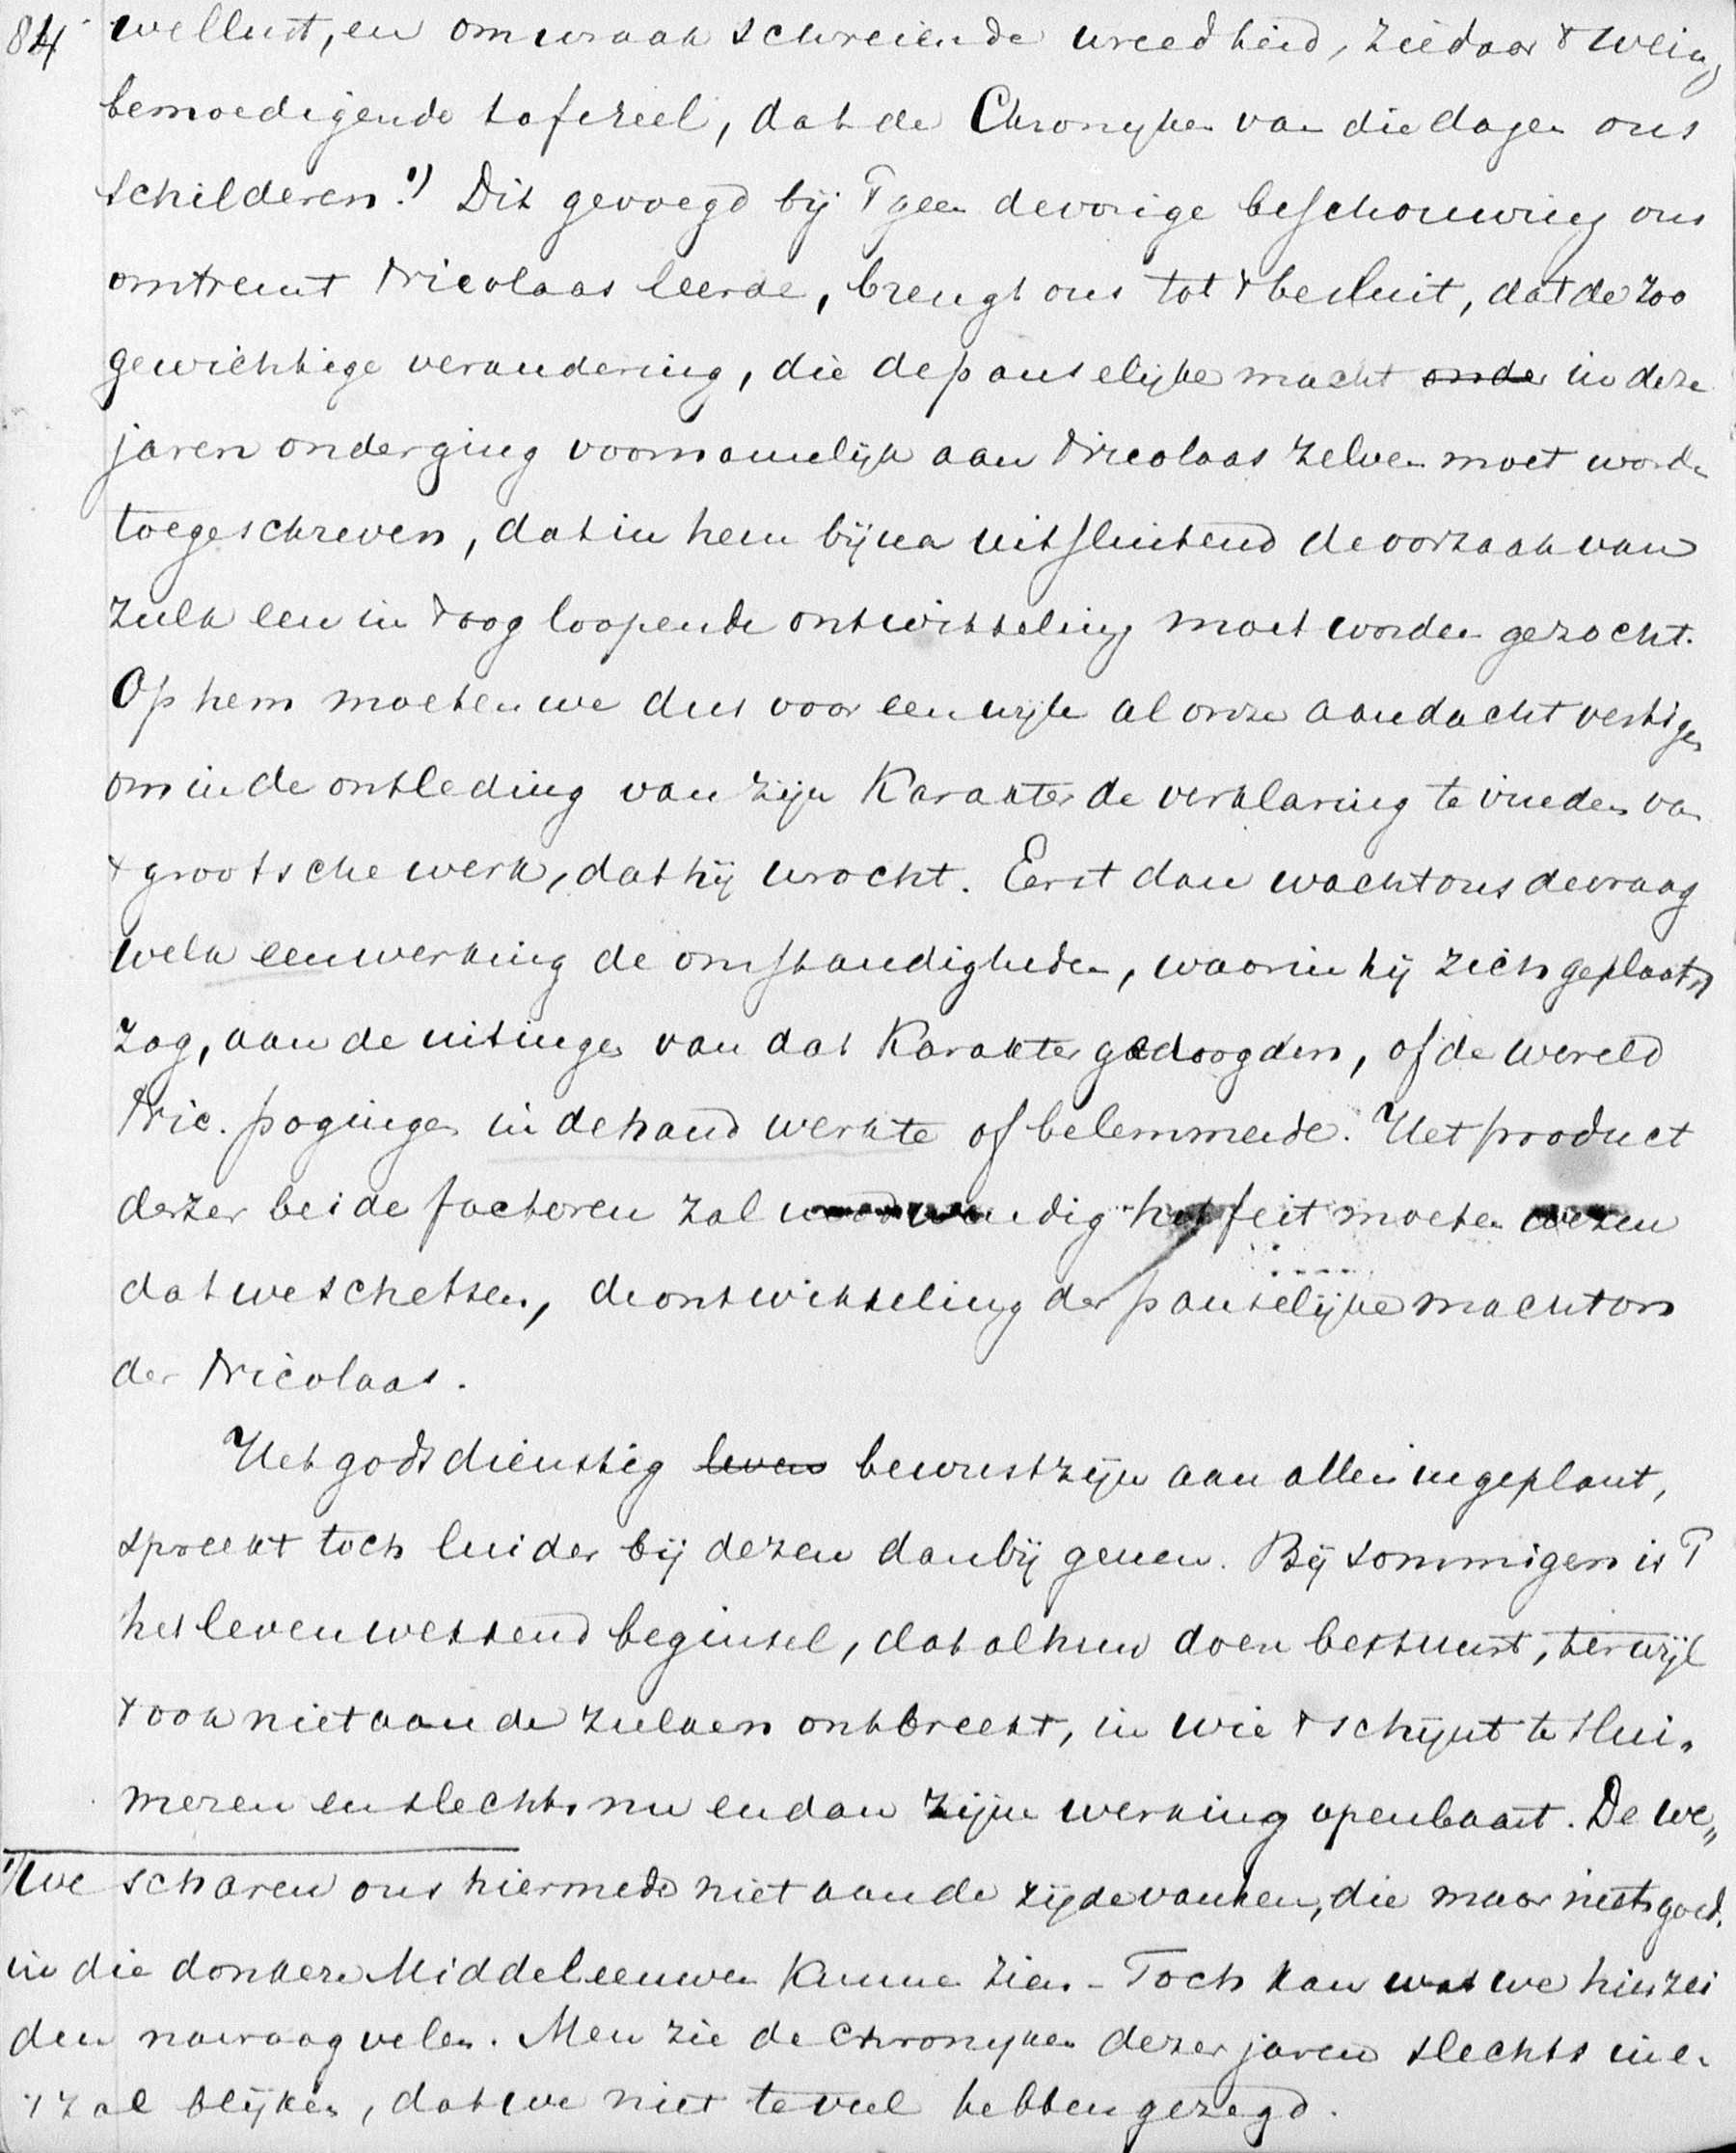 84 wellust, en om wraak schreiende wreedheid, ziedaar 't weinig
bemoedigende tafereel, dat de Chronyken van die dagen ons
schilderen.1) Dit gevoegd bij 'tgeen de vorige beschouwing ons
omtrent Nicolaas leerde, brengt ons tot 't besluit, dat de zoo
gewichtige verandering, die de pauselijke macht onder in deze
jaren onderging voornamelijk aan Nicolaas zelven moet worden
toegeschreven, dat in hem bijna uitsluitend de oorzaak van
zulk een in 't oog loopende ontwikkeling moet worden gezocht.
Op hem moeten we dus voor een wijle al onze aandacht vestigen
om in de ontleding van zijn Karakter de verklaring te vinden van
't grootsche werk, dat hij wrocht. Eerst dan wacht ons de vraag
welk een werking de omstandigheden, waarin hij zich geplaatst
zag, aan de uitingen van dat Karakter gedoogden, of de wereld
Nic. pogingen in de hand werkte of belemmerde. Het product
dezer beide factoren zal noodwendig het feit moeten wezen
dat we schetsen, de ontwikkeling der pauselijke macht on
der Nicolaas.
Het godsdienstig leven bewustzijn aan allen ingeplant,
spreekt toch luider bij dezen dan bij genen. Bij sommigen is 't
het levenwekkend beginsel, dat al hun doen bestuurt, terwijl
't ook niet aan de zulken ontbreekt, in wie 't schijnt te slui-
meren en slechts nu en dan zijn werking openbaart. De we„
1) We scharen ons hiermede niet aan de zijde van hen, die maar niets goeds
in die donkere Middeleeuwen kunnen zien - Toch kan wat we hier zei
den navraag velen. Men zie de chronyken dezer jaren slechts in en
't zal blijken, dat we niet te veel hebben gezegd.